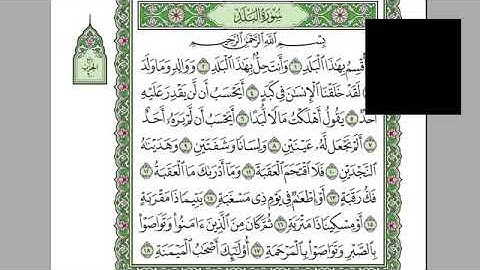 سُورَةُ البَلَدِ
بِسْمِ اللَّهِ الرَّحْمَٰنِ الرَّحِيمِ
أُقْسِمُ بِهَٰذَا الْبَلَدِ ١ وَأَنتَ حِلٌّ بِهَٰذَا الْبَلَدِ ٢ وَوَالِدٍ وَمَا وَلَدَ
٣ لَقَدْ خَلَقْنَا الْإِنسَانَ فِي كَبَدٍ ٤ أَيَحْسَبُ أَن لَّن يَقْدِرَ عَلَيْهِ
أَحَدٌ ٥ يَقُولُ أَهْلَكْتُ مَالًا لُّبَدًا ٦ أَيَحْسَبُ أَن لَّمْ يَرَهُ أَحَدٌ
٧ أَلَمْ نَجْعَل لَّهُ عَيْنَيْنِ ٨ وَلِسَانًا وَشَفَتَيْنِ ٩ وَهَدَيْنَاهُ
النَّجْدَيْنِ ١٠ فَلَا اقْتَحَمَ الْعَقَبَةَ ١١ وَمَا أَدْرَاكَ مَا الْعَقَبَةُ ١٢
فَكُّ رَقَبَةٍ ١٣ أَوْ إِطْعَامٌ فِي يَوْمٍ ذِي مَسْغَبَةٍ ١٤ يَتِيمًا ذَا مَقْرَبَةٍ
١٥ أَوْ مِسْكِينًا ذَا مَتْرَبَةٍ ١٦ ثُمَّ كَانَ مِنَ الَّذِينَ آمَنُوا وَتَوَاصَوْا
بِالصَّبْرِ وَتَوَاصَوْا بِالْمَرْحَمَةِ ١٧ أُولَٰئِكَ أَصْحَابُ الْمَيْمَنَةِ ١٨